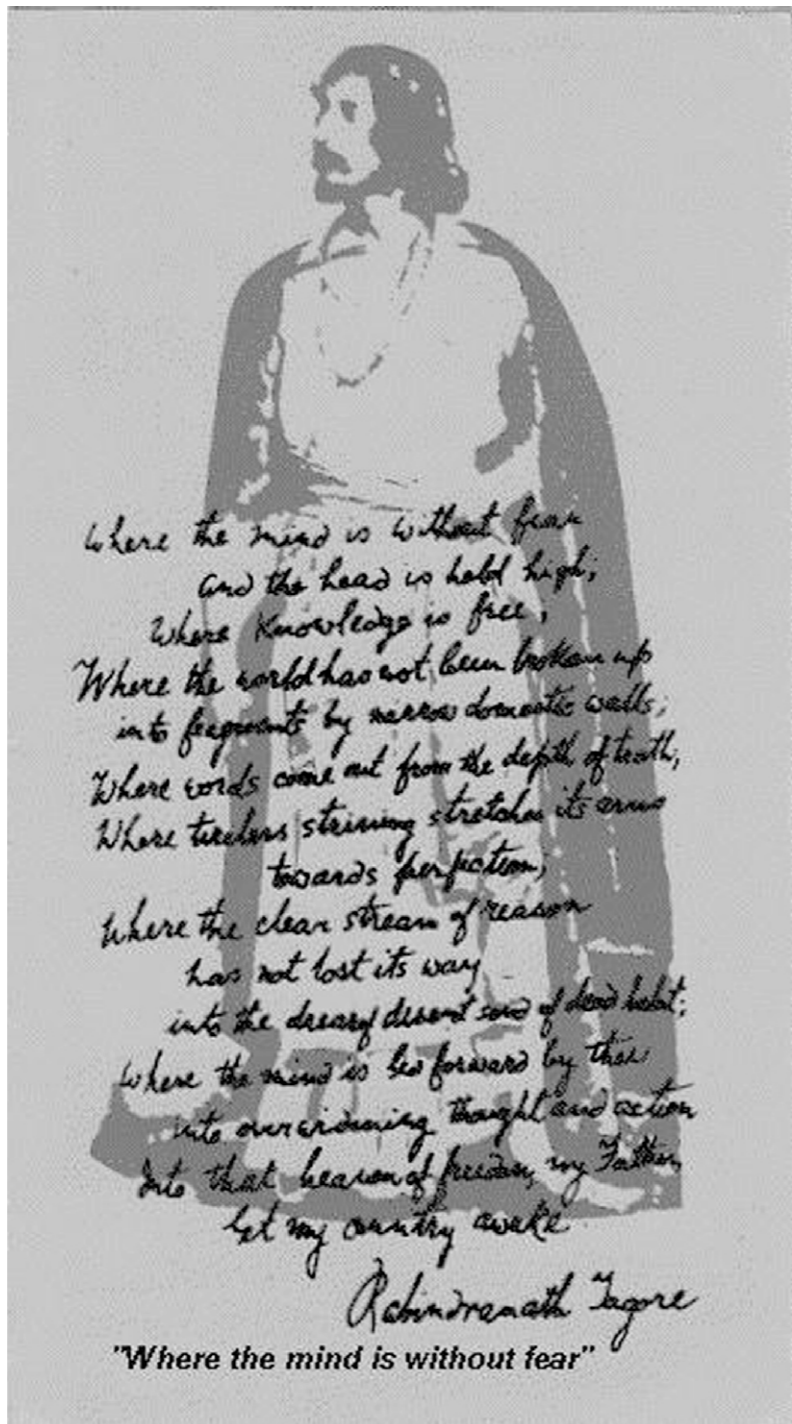 Where the mind is without fear
and the head is held high;
Where knowledge is free;
Where the world has not been broken up
into fragments by narrow domestic walls;
Where words come out from the depth of truth,
Where tireless striving stretches its arms
towards perfection;
Where the clear stream of reason
has not lost its way
into the dreary desert sand of dead habit;
Where the mind is led forward by thee
into ever widening thought and action
Into that heaven of freedom, my Father,
let my country awake
Rabindranath Tagore
"Where the mind is without fear"